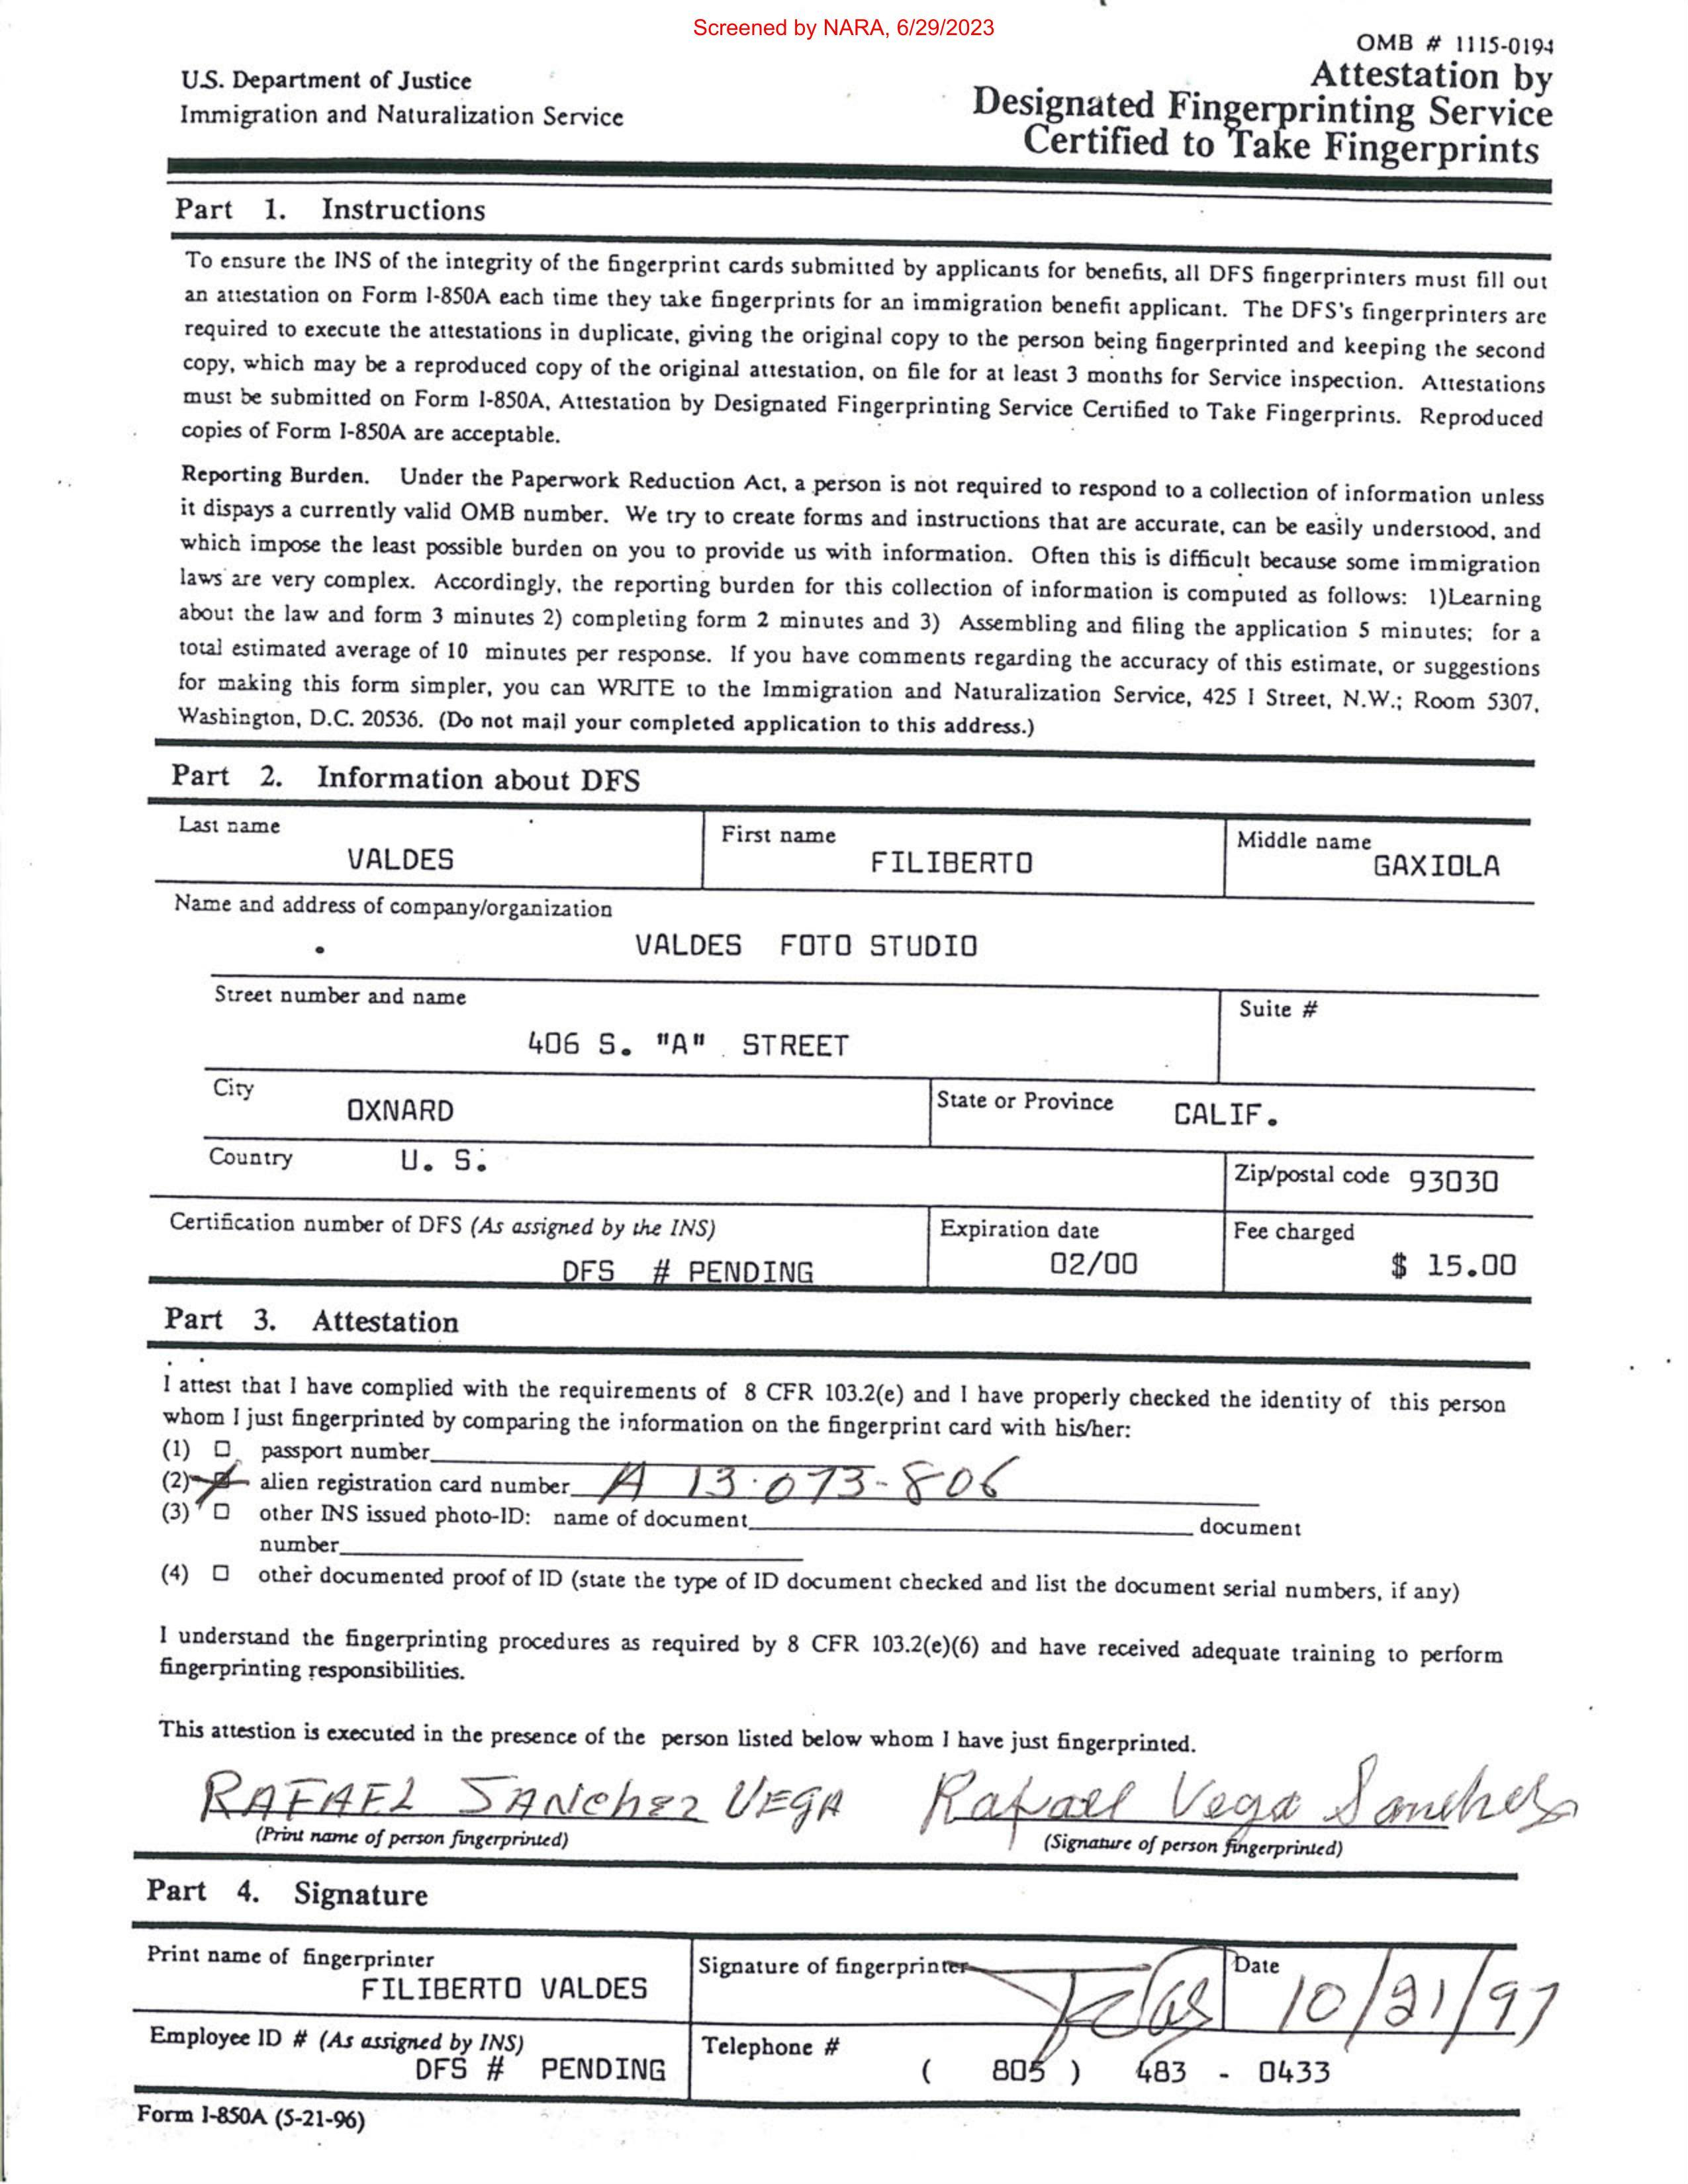 Screened by NARA, 6/29/2023
OMB # 1115-0194
U.S. Department of Justice
Immigration and Naturalization Service
Attestation by
Designated Fingerprinting Service
Certified to Take Fingerprints
Part 1. Instructions
To ensure the INS of the integrity of the fingerprint cards submitted by applicants for benefits, all DFS fingerprinters must fill out
an attestation on Form I-850A each time they take fingerprints for an immigration benefit applicant. The DFS's fingerprinters are
required to execute the attestations in duplicate, giving the original copy to the person being fingerprinted and keeping the second
copy, which may be a reproduced copy of the original attestation, on file for at least 3 months for Service inspection. Attestations
must be submitted on Form I-850A, Attestation by Designated Fingerprinting Service Certified to Take Fingerprints. Reproduced
copies of Form I-850A are acceptable.
Reporting Burden. Under the Paperwork Reduction Act, a person is not required to respond to a collection of information unless
it dispays a currently valid OMB number. We try to create forms and instructions that are accurate, can be easily understood, and
which impose the least possible burden on you to provide us with information. Often this is difficult because some immigration
laws are very complex. Accordingly, the reporting burden for this collection of information is computed as follows: 1)Learning
about the law and form 3 minutes 2) completing form 2 minutes and 3) Assembling and filing the application 5 minutes; for a
total estimated average of 10 minutes per response. If you have comments regarding the accuracy of this estimate, or suggestions
for making this form simpler, you can WRITE to the Immigration and Naturalization Service, 425 I Street, N.W.; Room 5307,
Washington, D.C. 20536. (Do not mail your completed application to this address.)
Part 2. Information about DFS
Last name First name Middle name
VALDES FILIBERTO GAXIOLA
Name and address of company/organization
VALDES FOTO STUDIO
Street number and name Suite #
406 S. "A" STREET
City OXNARD State or Province CALIF.
Country U. S. Zip/postal code 93030
Certification number of DFS (As assigned by the INS) Expiration date Fee charged
DFS # PENDING 02/00 $ 15.00
Part 3. Attestation
I attest that I have complied with the requirements of 8 CFR 103.2(e) and I have properly checked the identity of this person
whom I just fingerprinted by comparing the information on the fingerprint card with his/her:
(1) passport number
(2) alien registration card number A 13·073-806
(3) other INS issued photo-ID: name of document document
number
(4) other documented proof of ID (state the type of ID document checked and list the document serial numbers, if any)
I understand the fingerprinting procedures as required by 8 CFR 103.2(e)(6) and have received adequate training to perform
fingerprinting responsibilities.
This attestion is executed in the presence of the person listed below whom I have just fingerprinted.
RAFAEL SANchez VEGA Rafael Vega Sanchez
(Print name of person fingerprinted) (Signature of person fingerprinted)
Part 4. Signature
Print name of fingerprinter Signature of fingerprinter Date
FILIBERTO VALDES 10/21/97
Employee ID # (As assigned by INS) Telephone #
DFS # PENDING ( 805 ) 483 - 0433
Form I-850A (5-21-96)